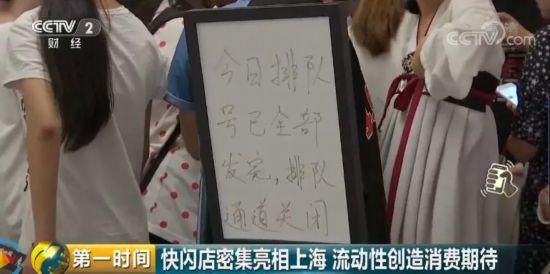 CCTV 2
财经
CCTV.com
今日排队
号已全部
发完，排队
通道关闭
第一时间 快闪店密集亮相上海 流动性创造消费期待